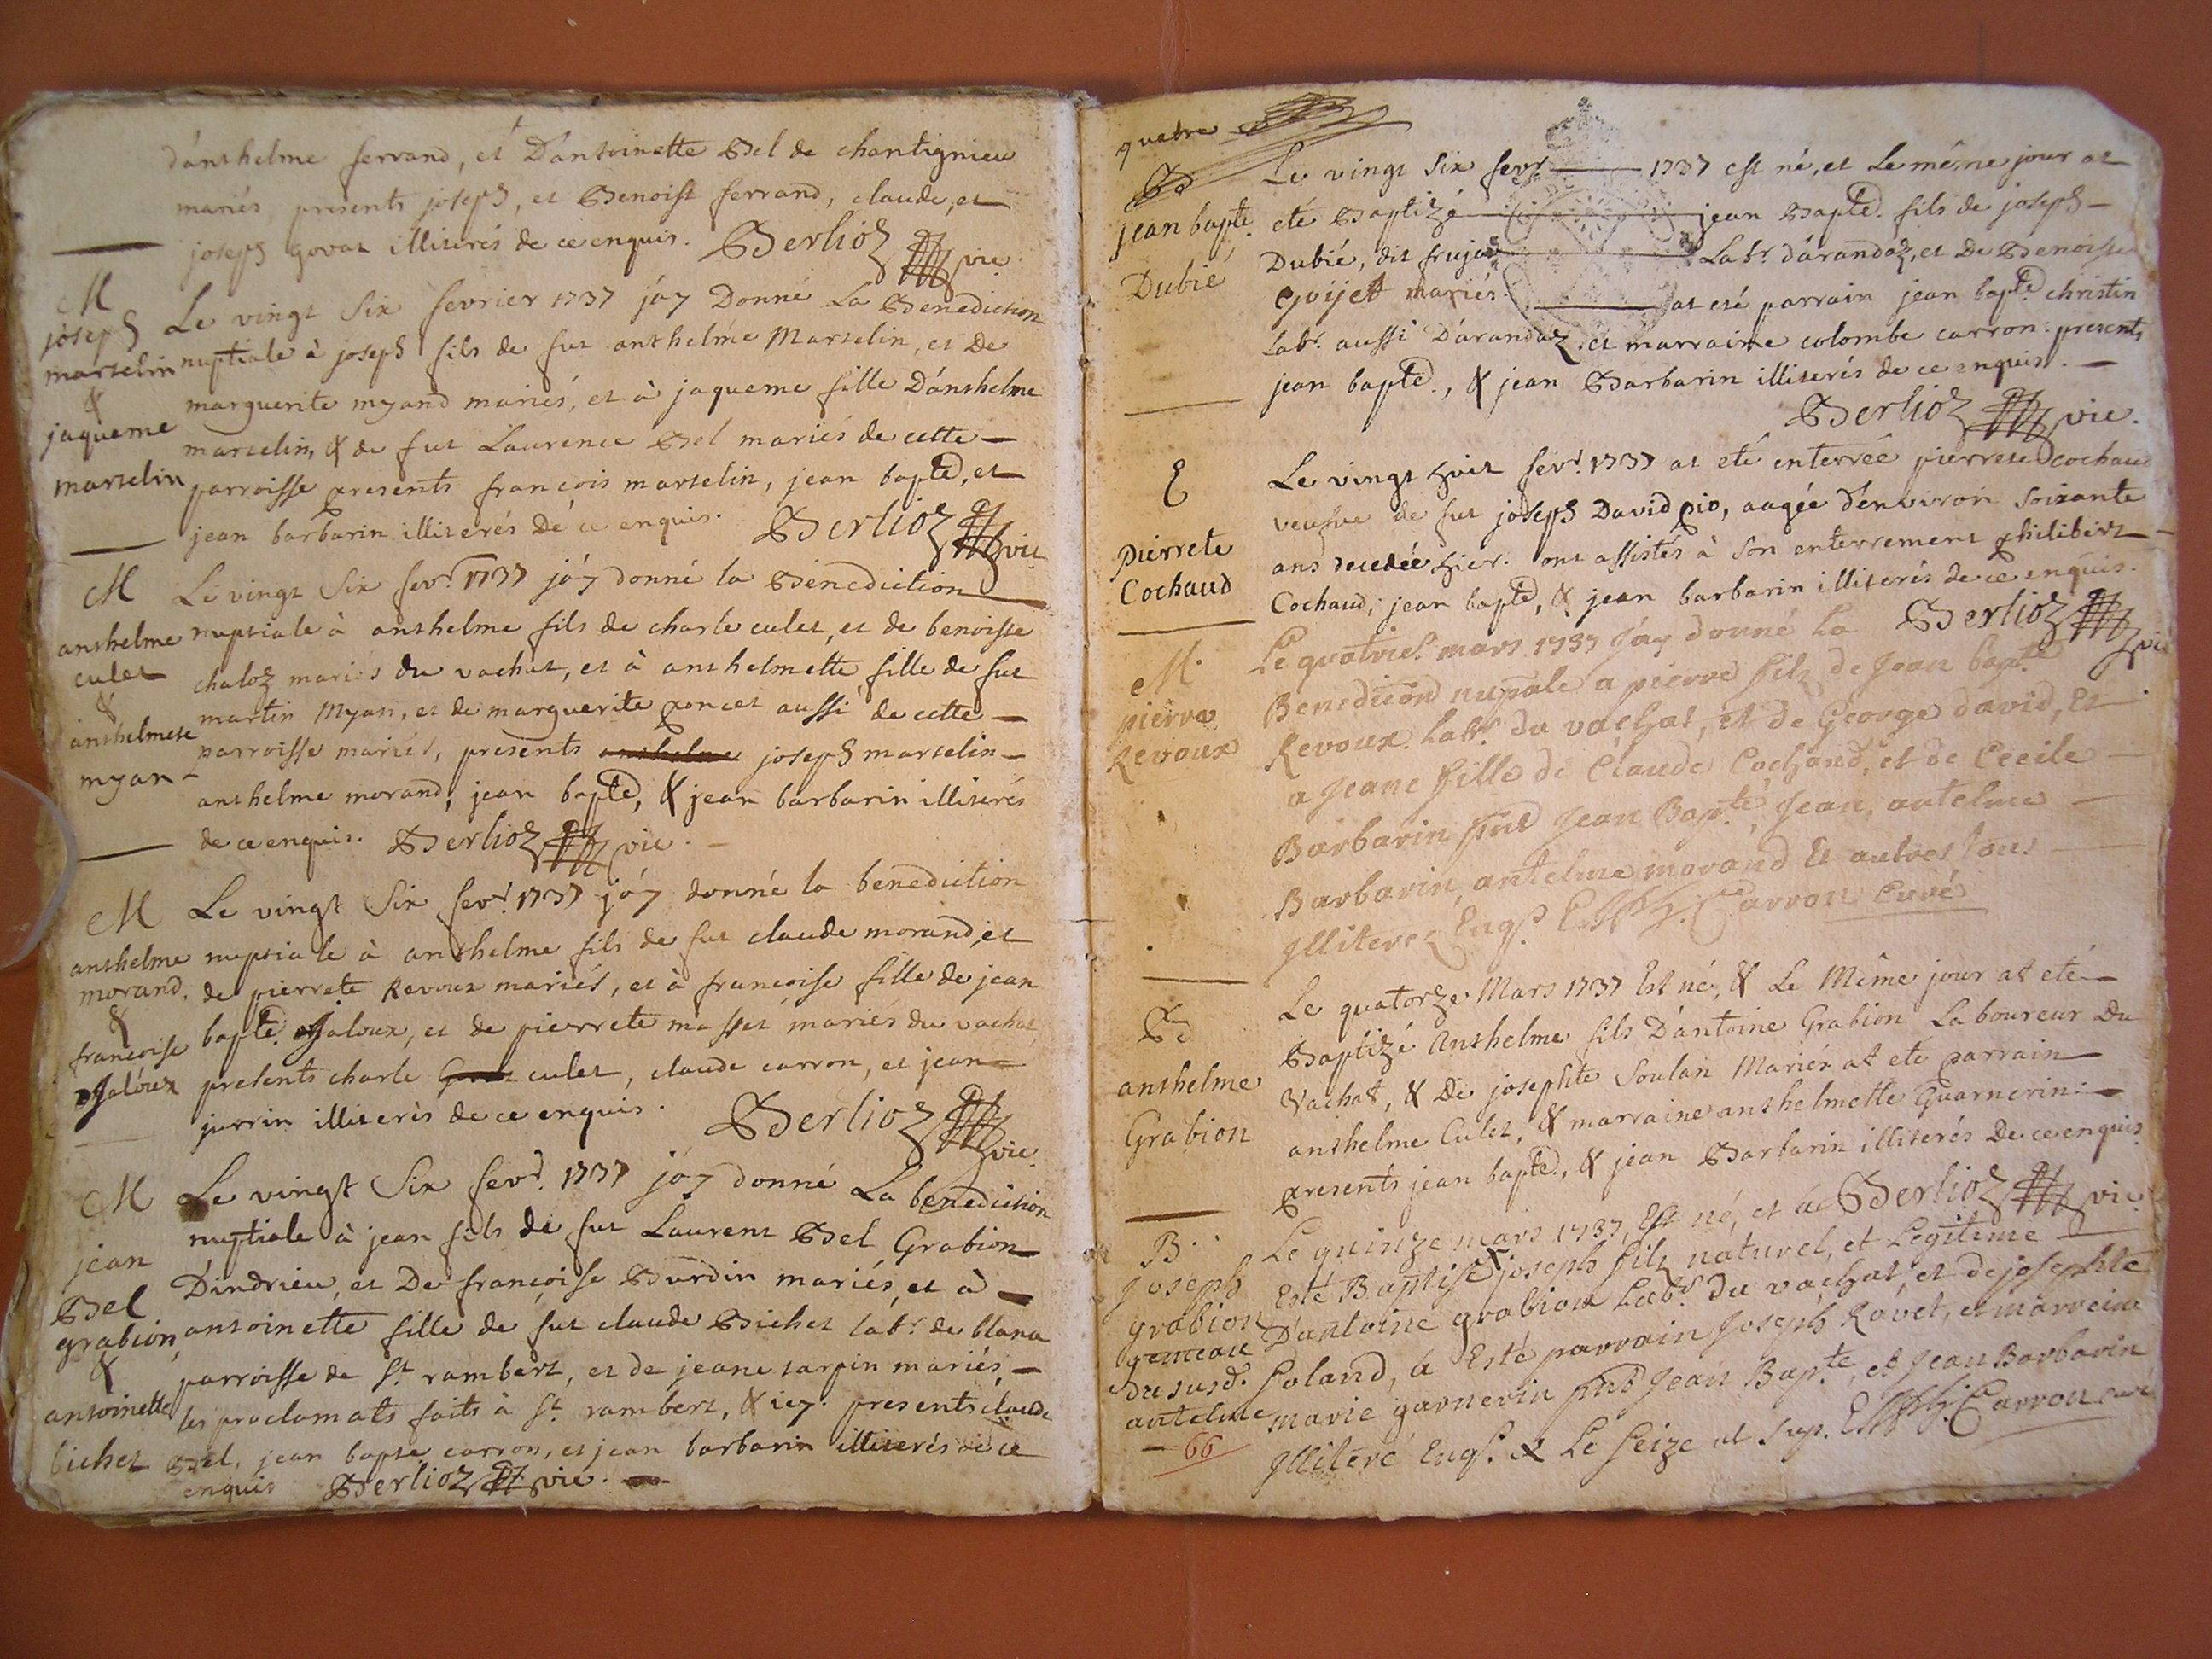 dánthelme ferrand, et Dántoinette Bel de chantignieu
mariés presents joseph, et Benoist ferrand, claude, et
joseph govat illiterés de ce enquis. Berlioz vic.
M
joseph
martelin
&
jaqueme
martelin
Le vingt Six fevrier 1737 j'ay Donné La Benediction
nuptiale à joseph fils de fut anthelme Martelin, et De
marguerite myand mariés, et à jaqueme fille Dánthelme
martelin, & de fut Laurence Bel mariés de cette
parroisse presents françois martelin, jean bapte, et
jean barbarin illiterés De ce enquis. Berlioz vic.
M
anthelme
culet
&
anthelmete
myan
Le vingt Six fevr. 1737 j'ay donné la Benediction
nuptiale à anthelme fils de charle culet, et de benoisse
chaloz mariés du vachat, et à anthelmette fille de fut
martin Myan, et de marguerite poncet aussi de cette
parroisse mariés, presents anthelme joseph martelin
anthelme morand, jean bapte, & jean barbarin illiterés
de ce enquis. Berlioz vic.
M
anthelme
morand,
&
francoise
Jaloux
Le vingt Six fevr. 1737 j'ay donné la benediction
nuptiale à anthelme fils de fut claude morand, et
de pierrete Revoux mariés, et à francoise fille de jean
bapte. Jaloux, et de pierrete masset mariés du vachat,
presents charle culet, claude carron, et jean
jurrin illiterés de ce enquis. Berlioz vic.
M
jean
Bel
grabion,
&
antoinette
bichet
Le vingt Six fevr. 1737 j'ay donné La benediction
nuptiale à jean fils de fut Laurent Bel Grabion
Dindrieu, et De françoise Burdin mariés, et à
antoinette fille de fut claude Bichet labr. de blana
parroisse de St. rambert, et de jeane tarpin mariés,
les proclamats faits à St. rambert, & icy. presents claude
Bel, jean bapte carron, et jean barbarin illiterés de ce
enquis Berlioz vic.
quatre
B
jean bapte.
Dubié
Le vingt Six fevr. 1737 est né, et Le même jour at
eté Baptizé jean Bapte. fils de joseph
Dubié, dit Labr. dárandaz, et De Benoiste
Goijet mariés. at eté parrain jean bapte. christin
labr. aussi Dárandaz, et marraine colombe carron. presents
jean bapte., & jean Barbarin illiterés de ce enquis.
Berlioz vic.
E
Pierrete
Cochaud
Le vingt huit fevr. 1737 at eté enterrée pierrete cochaud
veufve de fut joseph David pio, aagée d'environ Soixante
ans decedée hier. ont assistés à Son enterrement philibert
Cochaud, jean bapte, & jean barbarin illiterés de ce enquis.
Berlioz vic
M.
pierre
Revoux
Le quatrie. mars 1737 J'ay donné La
Benedicõn nupale a pierre fils de Jean bapte
Revoux. labr. du vachat, et de George david, et
a Jeane fille de Claude Cochand, et de Cecile
Barbarin pnt Jean Bapte, Jean, antelme
Barbarin, antelme morand Et autres tous
Illiterez Enqs. Carron Curé
B
anthelme
Grabion
Le quatorze Mars 1737 Est né, & Le Même jour at eté
Baptizé Anthelme fils D'antoine Grabion Laboureur Du
Vachat, & De josephte Soulan Mariés at eté parrain
anthelme Culet, & marraine anthelmette Guarnerin.
presents jean bapte., & jean Barbarin illiterés De ce enquis.
Berlioz vic.
B.
Joseph
grabion
gemeau
du susd.
antelme
66
Le quinze mars 1737, Est né, et a
Esté Baptisé joseph fils naturel, et Legitime
D'antoine grabion Labr. du vachat, et de josephte
Soland, a Esté parrain Joseph Ravet, et marreine
marie garnerin pnt Jean Bapte, et Jean Barbarin
Illiteré Enqs. & Le Seize ut Sup. Carron curé